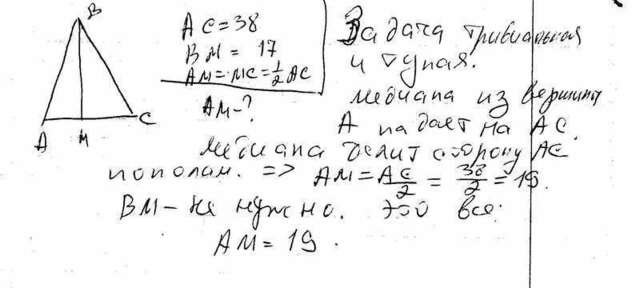 B
A
M
C
AC=38
BM = 17
AM=MC=1/2 AC
AM-?
Задача тривиальная
и тупая.
медиана из вершины
A падает на AC.
медиана делит сторону AC
пополам. => AM=AC/2=38/2=19.
BM-не нужно. это все.
AM=19.